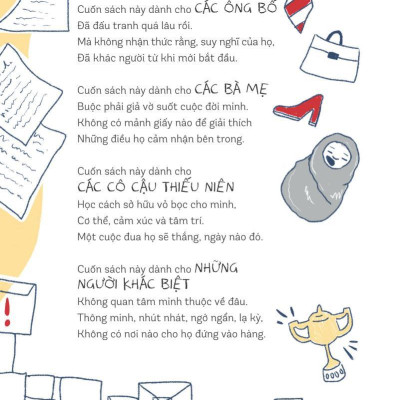 Cuốn sách này dành cho CÁC ÔNG BỐ
Đã đấu tranh quá lâu rồi.
Mà không nhận thức rằng, suy nghĩ của họ,
Đã khác người từ khi mới bắt đầu.
Cuốn sách này dành cho CÁC BÀ MẸ
Buộc phải giả vờ suốt cuộc đời mình.
Không có mảnh giấy nào để giải thích
Những điều họ cảm nhận bên trong.
Cuốn sách này dành cho
CÁC CÔ CẬU THIẾU NIÊN
Học cách sở hữu vỏ bọc cho mình,
Cơ thể, cảm xúc và tâm trí.
Một cuộc đua họ sẽ thắng, ngày nào đó.
Cuốn sách này dành cho NHỮNG
NGƯỜI KHÁC BIỆT
Không quan tâm mình thuộc về đâu.
Thông minh, nhút nhát, ngờ nghẫn, lạ kỳ,
Không có nơi nào cho họ đứng vào hàng.
!